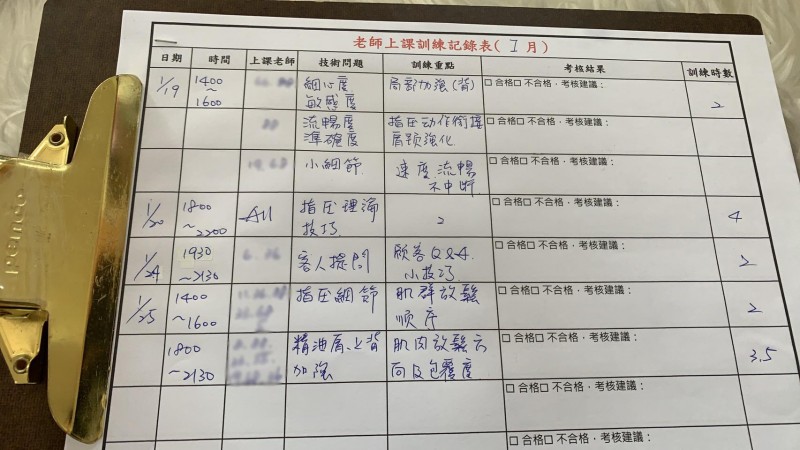 老師上課訓練記錄表( 1 月)
日期 時間 上課老師 技術問題 訓練重點 考核結果 訓練時數
1/19 1400～1600 細心度 敏感度 局部加強(背) □ 合格□ 不合格，考核建議： 2
流暢度 準確度 指压动作銜接 肩頸強化 □ 合格□ 不合格，考核建議：
小細節 速度流暢 不中斷 □ 合格□ 不合格，考核建議：
1/20 1800～2200 All 指压理論 技巧 2 □ 合格□ 不合格，考核建議： 4
1/24 1930～2130 客人提問 顧客Q&A. 小技巧 □ 合格□ 不合格，考核建議： 2
1/25 1400～1600 指压細節 肌群放鬆 順序 □ 合格□ 不合格，考核建議： 2
1800～2130 精油肩、上背 加強 肌肉放鬆方向及包覆度 □ 合格□ 不合格，考核建議： 3.5
□ 合格□ 不合格，考核建議：
□ 合格□ 不合格，考核建議：
Pendo